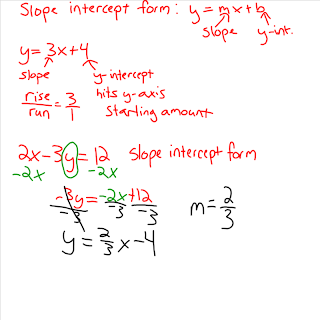 Slope intercept form: y = mx + b
slope y-int.
y = 3x + 4
slope y-intercept
rise/run = 3/1 hits y-axis
starting amount
2x - 3y = 12 slope intercept form
-2x -2x
-3y/-3 = -2x/-3 + 12/-3 m = 2/3
y = 2/3 x - 4